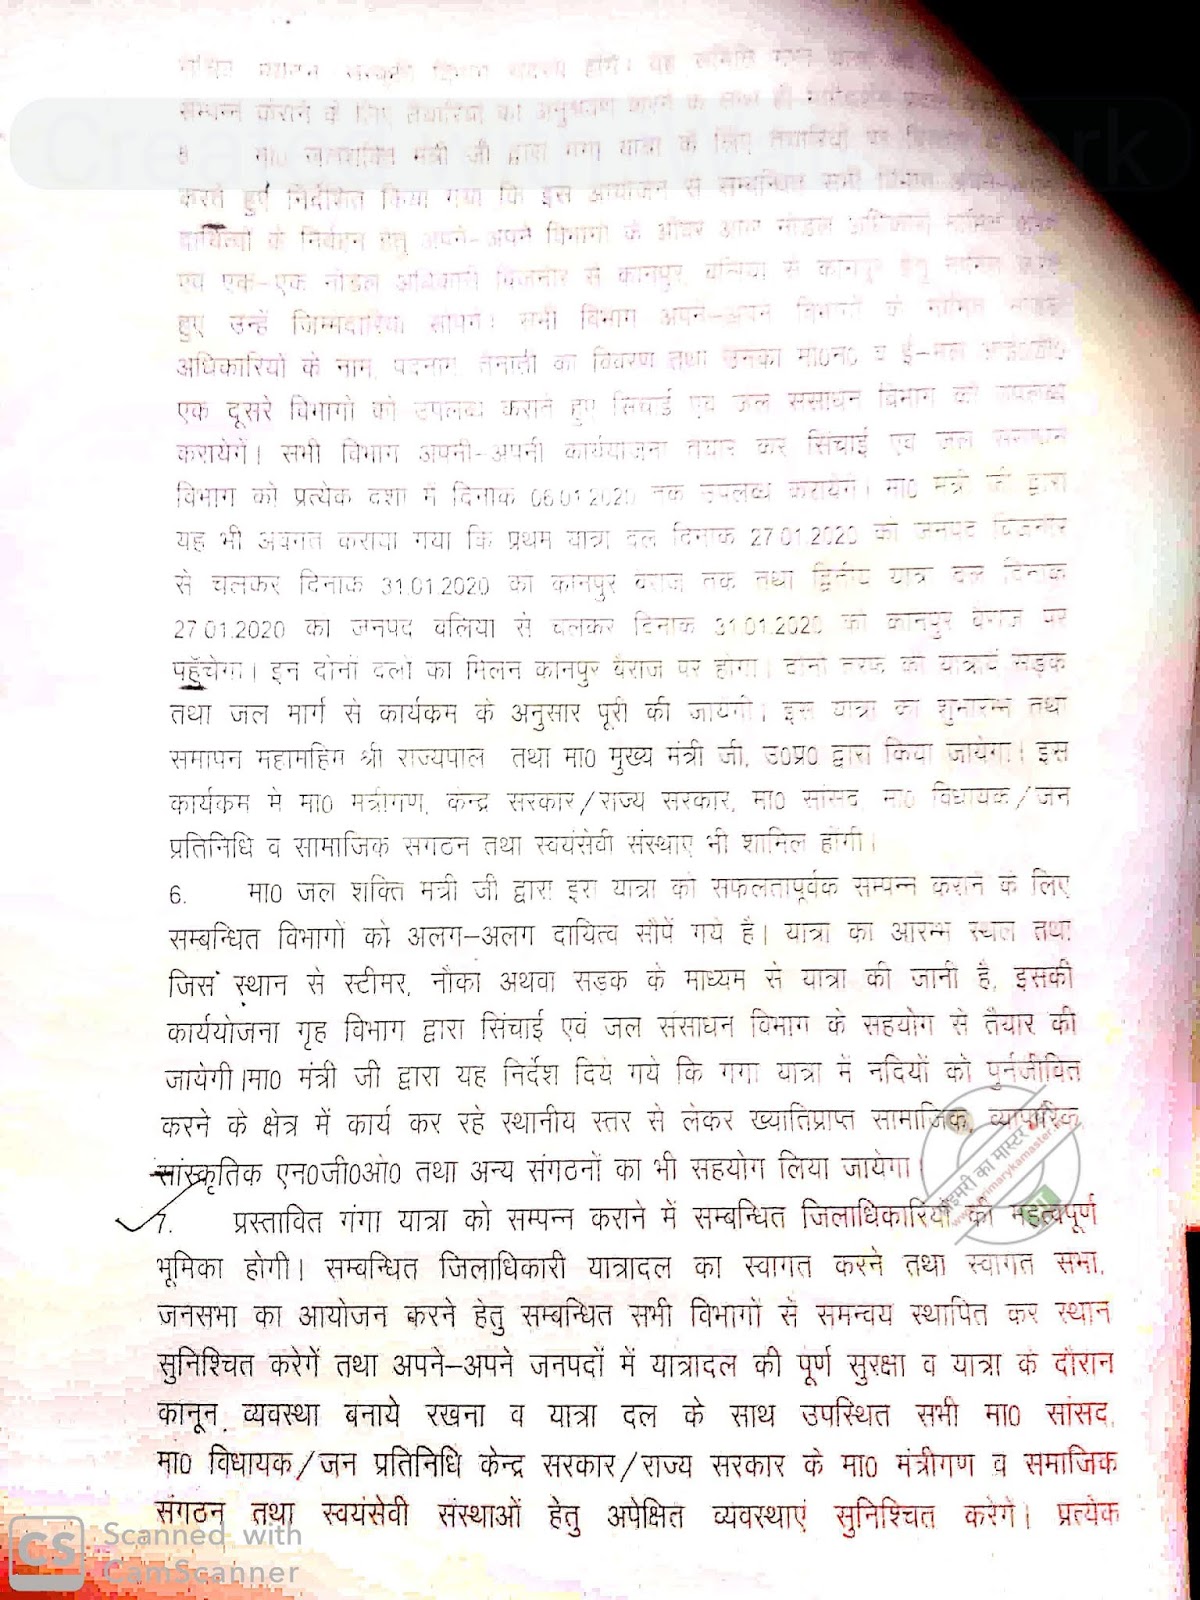 सम्पन्न कराने के लिए तैयारियों का अनुश्रवण करने के साथ ही
मा0 जलशक्ति मंत्री जी द्वारा गंगा यात्रा के लिए तैयारियों पर
करते हुए निर्देशित किया गया कि इस आयोजन से सम्बन्धित सभी विभाग अपने-अपने
दायित्वों के निर्वहन हेतु अपने-अपने विभागों के ओवर आल नोडल अधिकारी नामित करने
एवं एक-एक नोडल अधिकारी बिजनौर से कानपुर, बलिया से कानपुर हेतु नामित करते
हुए उन्हें जिम्मेदारियां सौंपेगें। सभी विभाग अपने-अपने विभागों के नामित नोडल
अधिकारियों के नाम, पदनाम, तैनाती का विवरण तथा उनका मो0नं0 व ई-मेल आई0डी0
एक दूसरे विभागों को उपलब्ध कराते हुए सिंचाई एवं जल संसाधन विभाग को उपलब्ध
करायेगें। सभी विभाग अपनी-अपनी कार्ययोजना तैयार कर सिंचाई एवं जल संसाधन
विभाग को प्रत्येक दशा में दिनांक 06.01.2020 तक उपलब्ध करायेगें। मा0 मंत्री जी द्वारा
यह भी अवगत कराया गया कि प्रथम यात्रा दल दिनांक 27.01.2020 को जनपद बिजनौर
से चलकर दिनांक 31.01.2020 को कानपुर बैराज तक तथा द्वितीय यात्रा दल दिनांक
27.01.2020 को जनपद बलिया से चलकर दिनांक 31.01.2020 को कानपुर बैराज पर
पहुँचेगा। इन दोनों दलों का मिलन कानपुर बैराज पर होगा। दोनों तरफ की यात्रायें सड़क
तथा जल मार्ग से कार्यकम के अनुसार पूरी की जायेगी। इस यात्रा का शुभारम्भ तथा
समापन महामहिम श्री राज्यपाल तथा मा0 मुख्य मंत्री जी, उ0प्र0 द्वारा किया जायेगा। इस
कार्यकम में मा0 मंत्रीगण, केन्द्र सरकार/राज्य सरकार, मा0 सांसद, मा0 विधायक/जन
प्रतिनिधि व सामाजिक संगठन तथा स्वयंसेवी संस्थाएं भी शामिल होंगी।
6. मा0 जल शक्ति मंत्री जी द्वारा इस यात्रा को सफलतापूर्वक सम्पन्न कराने के लिए
सम्बन्धित विभागों को अलग-अलग दायित्व सौपें गये है। यात्रा का आरम्भ स्थल तथा
जिस स्थान से स्टीमर, नौका अथवा सड़क के माध्यम से यात्रा की जानी है, इसकी
कार्ययोजना गृह विभाग द्वारा सिंचाई एवं जल संसाधन विभाग के सहयोग से तैयार की
जायेगी।मा0 मंत्री जी द्वारा यह निर्देश दिये गये कि गंगा यात्रा में नदियों को पुर्नजीवित
करने के क्षेत्र में कार्य कर रहे स्थानीय स्तर से लेकर ख्यातिप्राप्त सामाजिक, व्यापारिक,
सांस्कृतिक एन0जी0ओ0 तथा अन्य संगठनों का भी सहयोग लिया जायेगा।
7. प्रस्तावित गंगा यात्रा को सम्पन्न कराने में सम्बन्धित जिलाधिकारियों की महत्वपूर्ण
भूमिका होगी। सम्बन्धित जिलाधिकारी यात्रादल का स्वागत करने तथा स्वागत सभा,
जनसभा का आयोजन करने हेतु सम्बन्धित सभी विभागों से समन्वय स्थापित कर स्थान
सुनिश्चित करेगें तथा अपने-अपने जनपदों में यात्रादल की पूर्ण सुरक्षा व यात्रा के दौरान
कानून व्यवस्था बनाये रखना व यात्रा दल के साथ उपस्थित सभी मा0 सांसद,
मा0 विधायक/जन प्रतिनिधि केन्द्र सरकार/राज्य सरकार के मा0 मंत्रीगण व समाजिक
संगठन तथा स्वयंसेवी संस्थाओं हेतु अपेक्षित व्यवस्थाएं सुनिश्चित करेगें। प्रत्येक
CS Scanned with
CamScanner